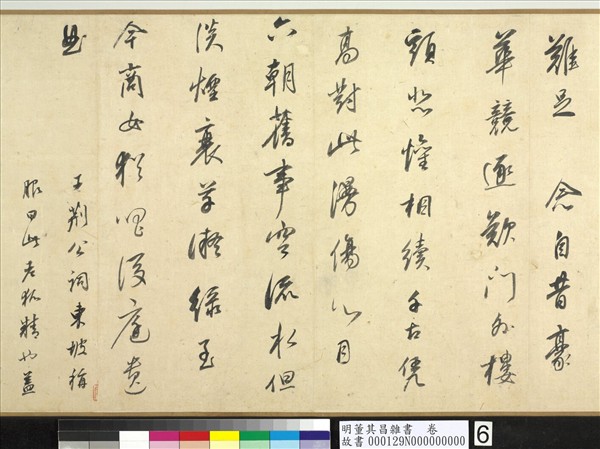 難足 念自昔豪
華競逐歎門外樓
頭悲懽相續千古凭
高對此漫傷心目
六朝舊事空流水但
淡煙衰草凝綠至
今商女猶唱後庭遺
曲
王荊公詞東坡稱
服曰此老狐精也蓋
明董其昌雜書 卷
故書 000129N000000000
6